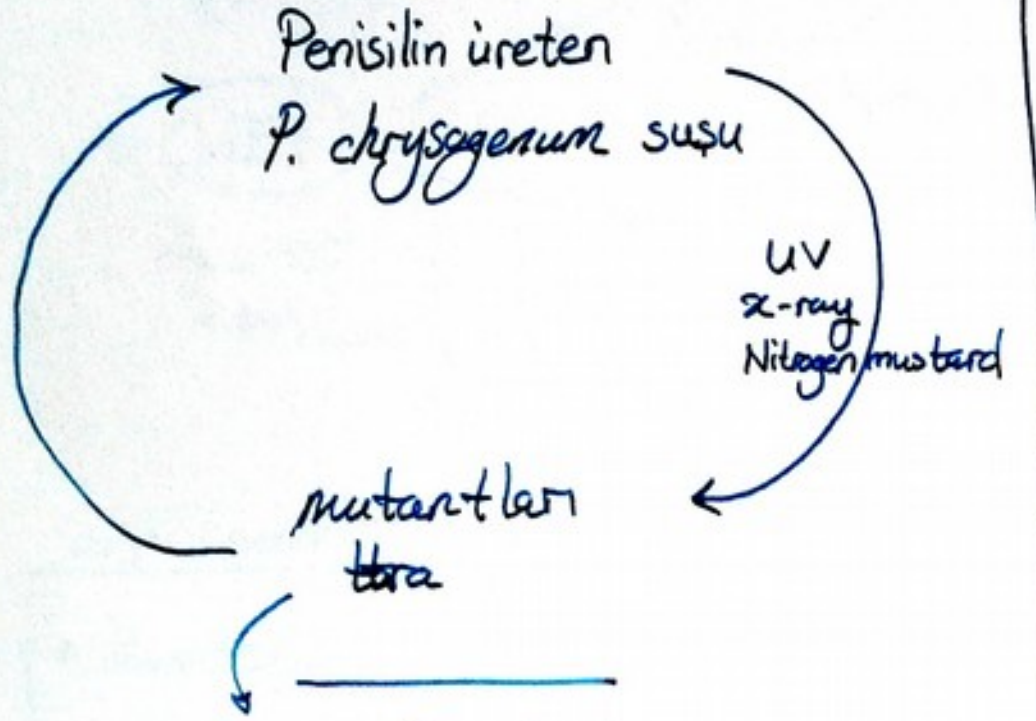 Penisilin üreten
P. chrysogenum suşu
UV
x-ray
Nitrogen mustard
mutantları
tara